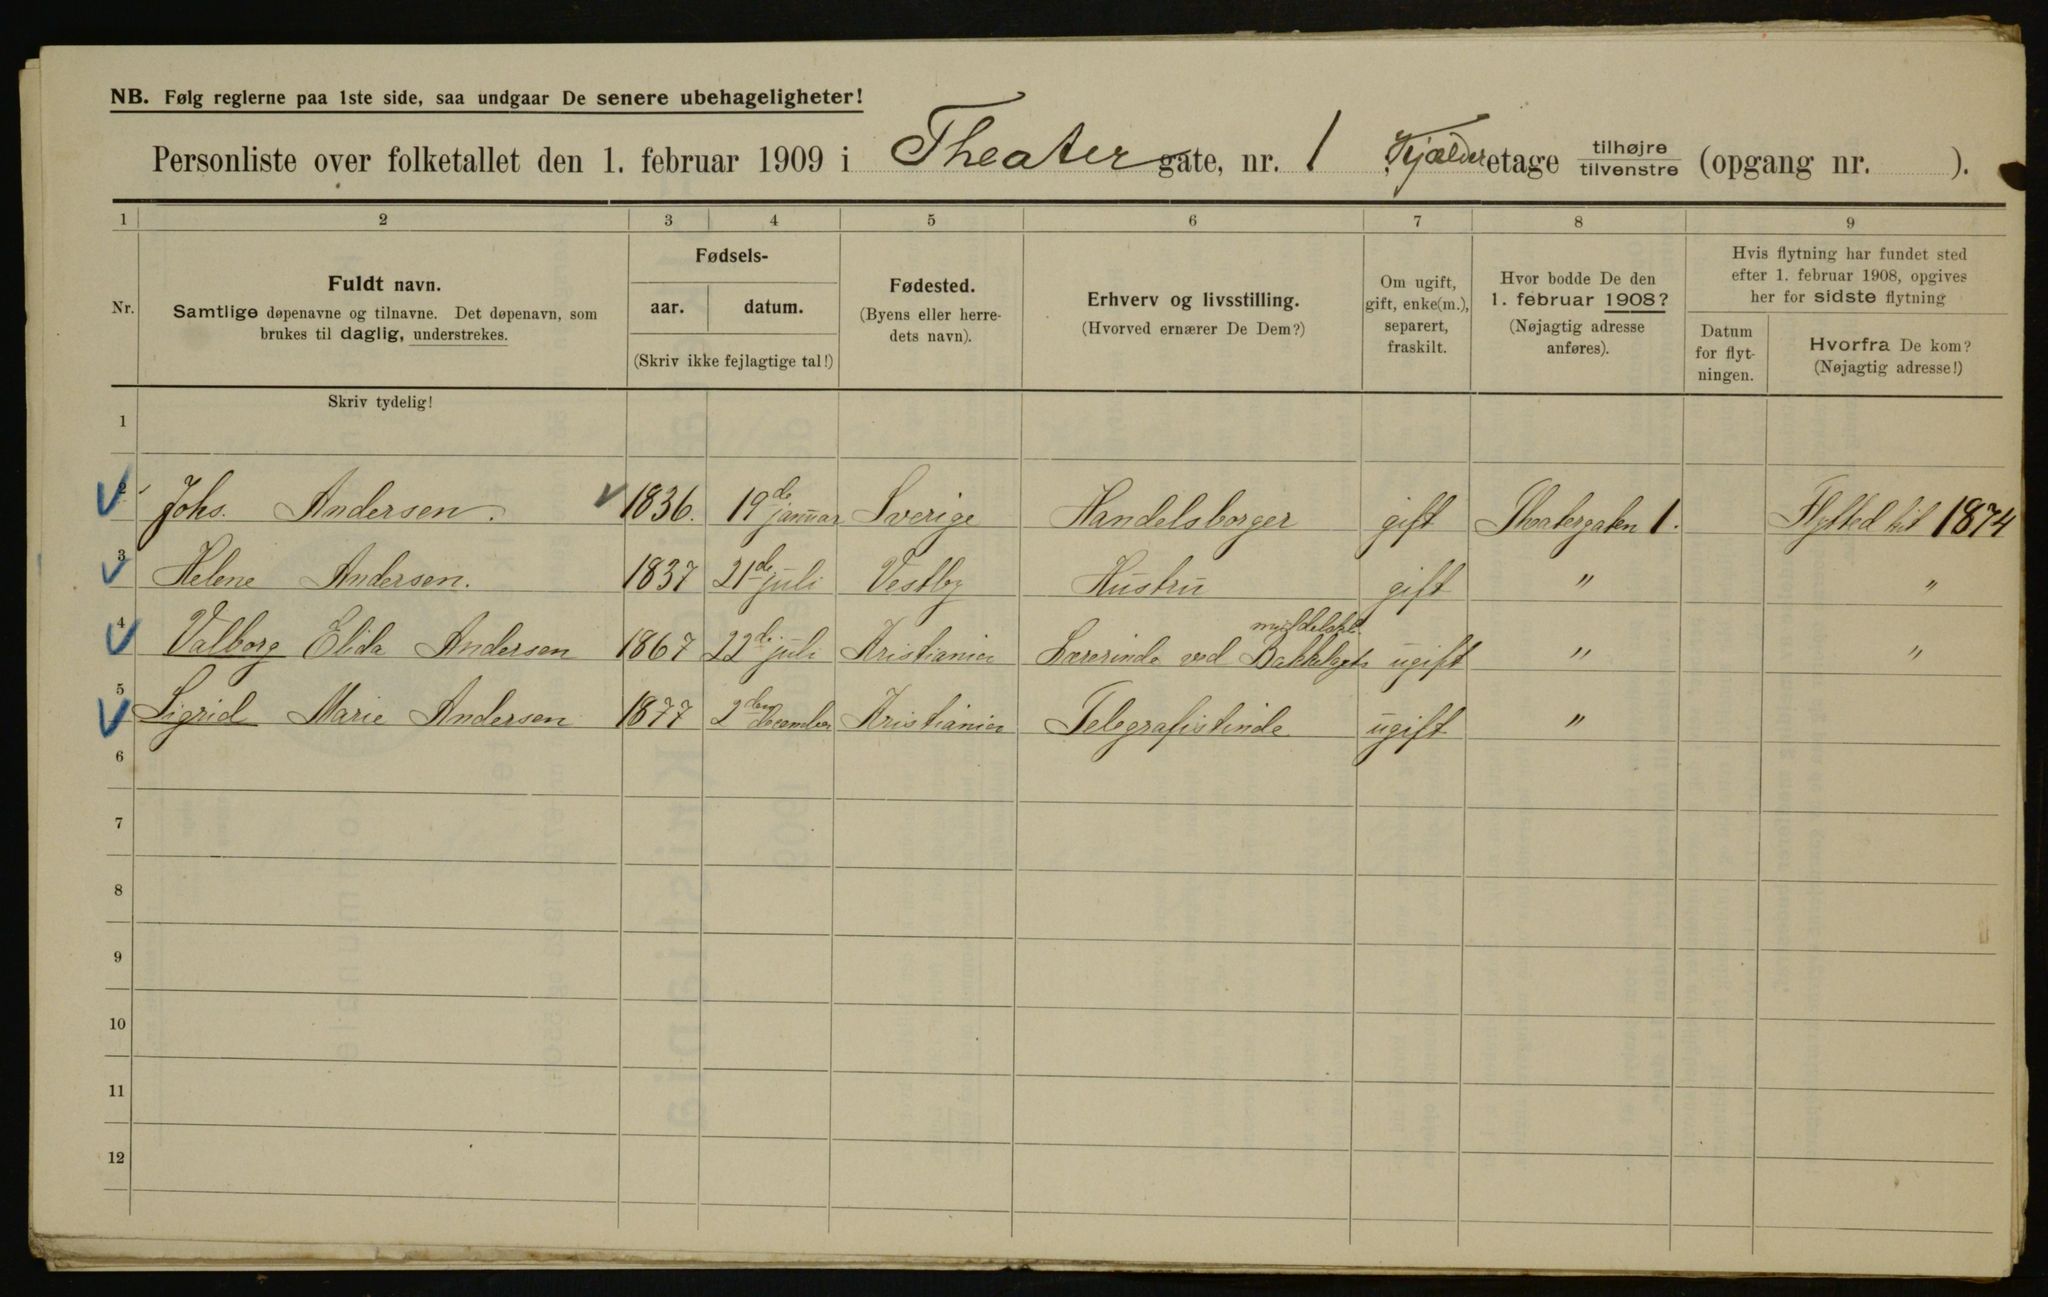 NB. Følg reglerne paa 1ste side, saa undgaar De senere ubehageligheter!
Personliste over folketallet den 1. februar 1909 i Theater gate, nr. 1 Kjælder etage tilhøjre/tilvenstre (opgang nr. ).
1 2 3 4 5 6 7 8 9
Nr.
Fuldt navn.
Samtlige døpenavne og tilnavne. Det døpenavn, som
brukes til daglig, understrekes.
Fødsels-
aar. datum.
(Skriv ikke fejlagtige tal!)
Fødested.
(Byens eller herre-
dets navn).
Erhverv og livsstilling.
(Hvorved ernærer De Dem?)
Om ugift,
gift, enke(m.),
separert,
fraskilt.
Hvor bodde De den
1. februar 1908?
(Nøjagtig adresse
anføres).
Hvis flytning har fundet sted
efter 1. februar 1908, opgives
her for sidste flytning
Datum
for flyt-
ningen.
Hvorfra De kom?
(Nøjagtig adresse!)
Skriv tydelig!
1
2 Johs. Andersen. 1836. 19de januar Sverige Handelsborger gift Theatergaten 1. Flytted hit 1874
3 Helene Andersen. 1837 21de juli Vestby Hustru gift " "
4 Valborg Elida Andersen 1867 22de juli Kristiania Lærerinde ved Bakkelagets ugift " "
5 Sigrid Marie Andersen 1877 2den december Kristiania Telegrafistinde ugift "
6
7
8
9
10
11
12